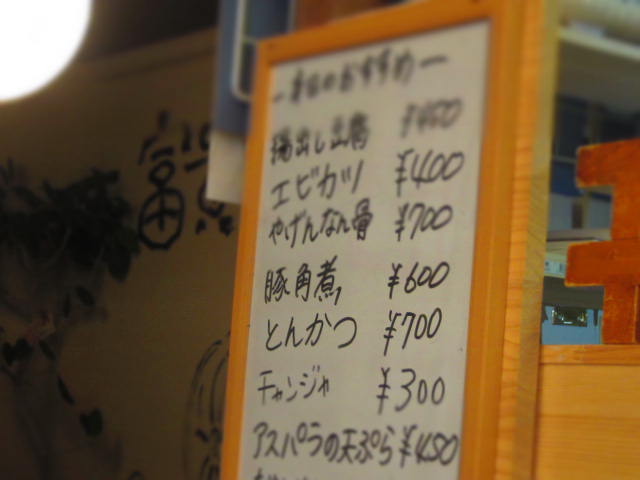 本日のおすすめ
揚出し豆腐 ¥450
エビカツ ¥400
やげんなん骨 ¥700
豚角煮 ¥600
とんかつ ¥700
チャンジャ ¥300
アスパラの天ぷら ¥450
富